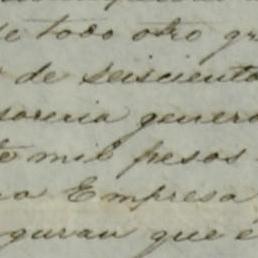 de todo otro gr
de seiscient
soreria gener
te mil pesos
na Empresa
guran que e